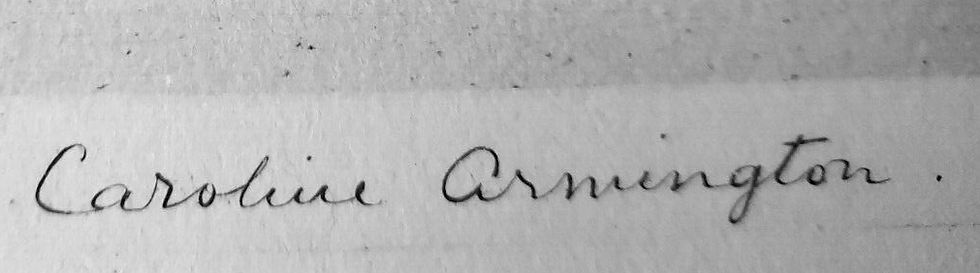 Caroline Armington.